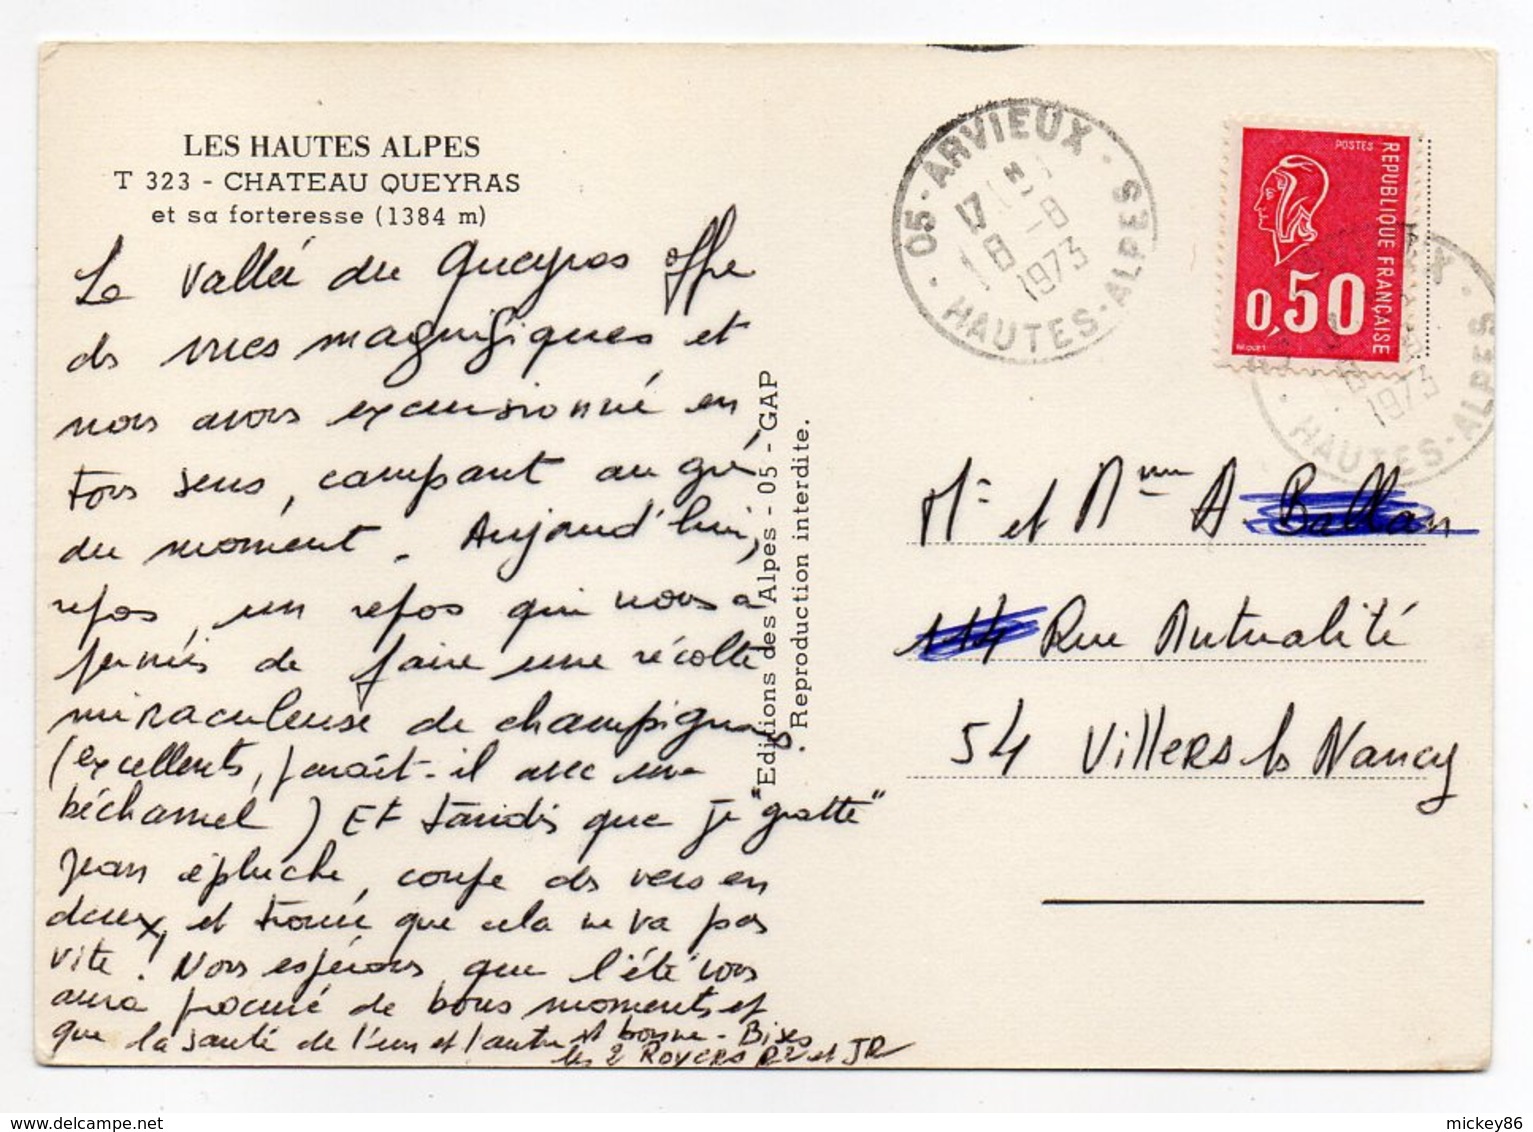 LES HAUTES ALPES
T 323 - CHATEAU QUEYRAS
et sa forteresse (1384 m)
La Vallée du Queyras offre
ds vues magnifiques et
nous avons excursionné en
tous sens, campant au gré
du moment. Aujourd'hui,
repos, un repos qui nous a
permis de faire une récolte
miraculeuse de champignons
(excellents, paraît-il avec une
béchamel) Et tandis que je "gratte"
Jean épluche, coupe ds vers en
deux, et trouve que cela ne va pas
vite! Nous espérons que l'été vous
aura procuré de bons moments et
que la santé de l'un et l'autre est bonne - Bises
les 2 Royers et JR
Editions des Alpes - 05 - GAP
Reproduction interdite.
05 - ARVIEUX
17
8 - 8
1973
HAUTES-ALPES
POSTES
REPUBLIQUE FRANÇAISE
0,50
BEQUET
1973
HAUTES-ALPES
Mr et Mme A. Ballan
114 Rue Mutualité
54 Villers ls Nancy
mickey86